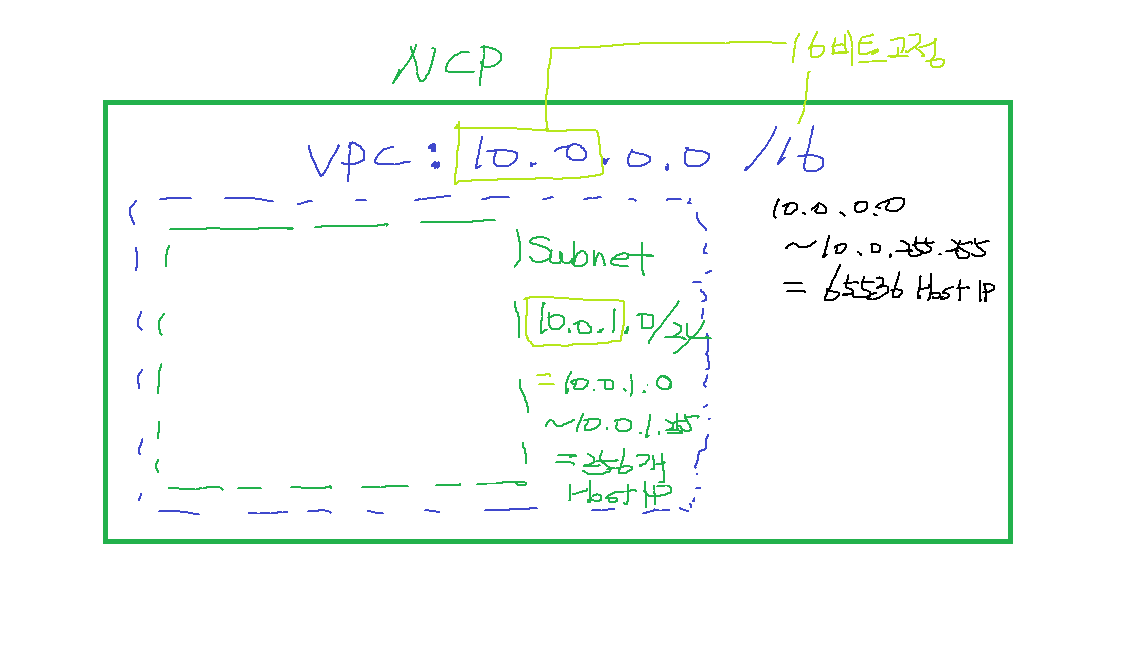 NCP
16비트고정
VPC : 10.0.0.0 /16
10.0.0.0
~10.0.255.255
= 65536 Host IP
Subnet
10.0.1.0/24
= 10.0.1.0
~10.0.1.255
=256개
Host IP